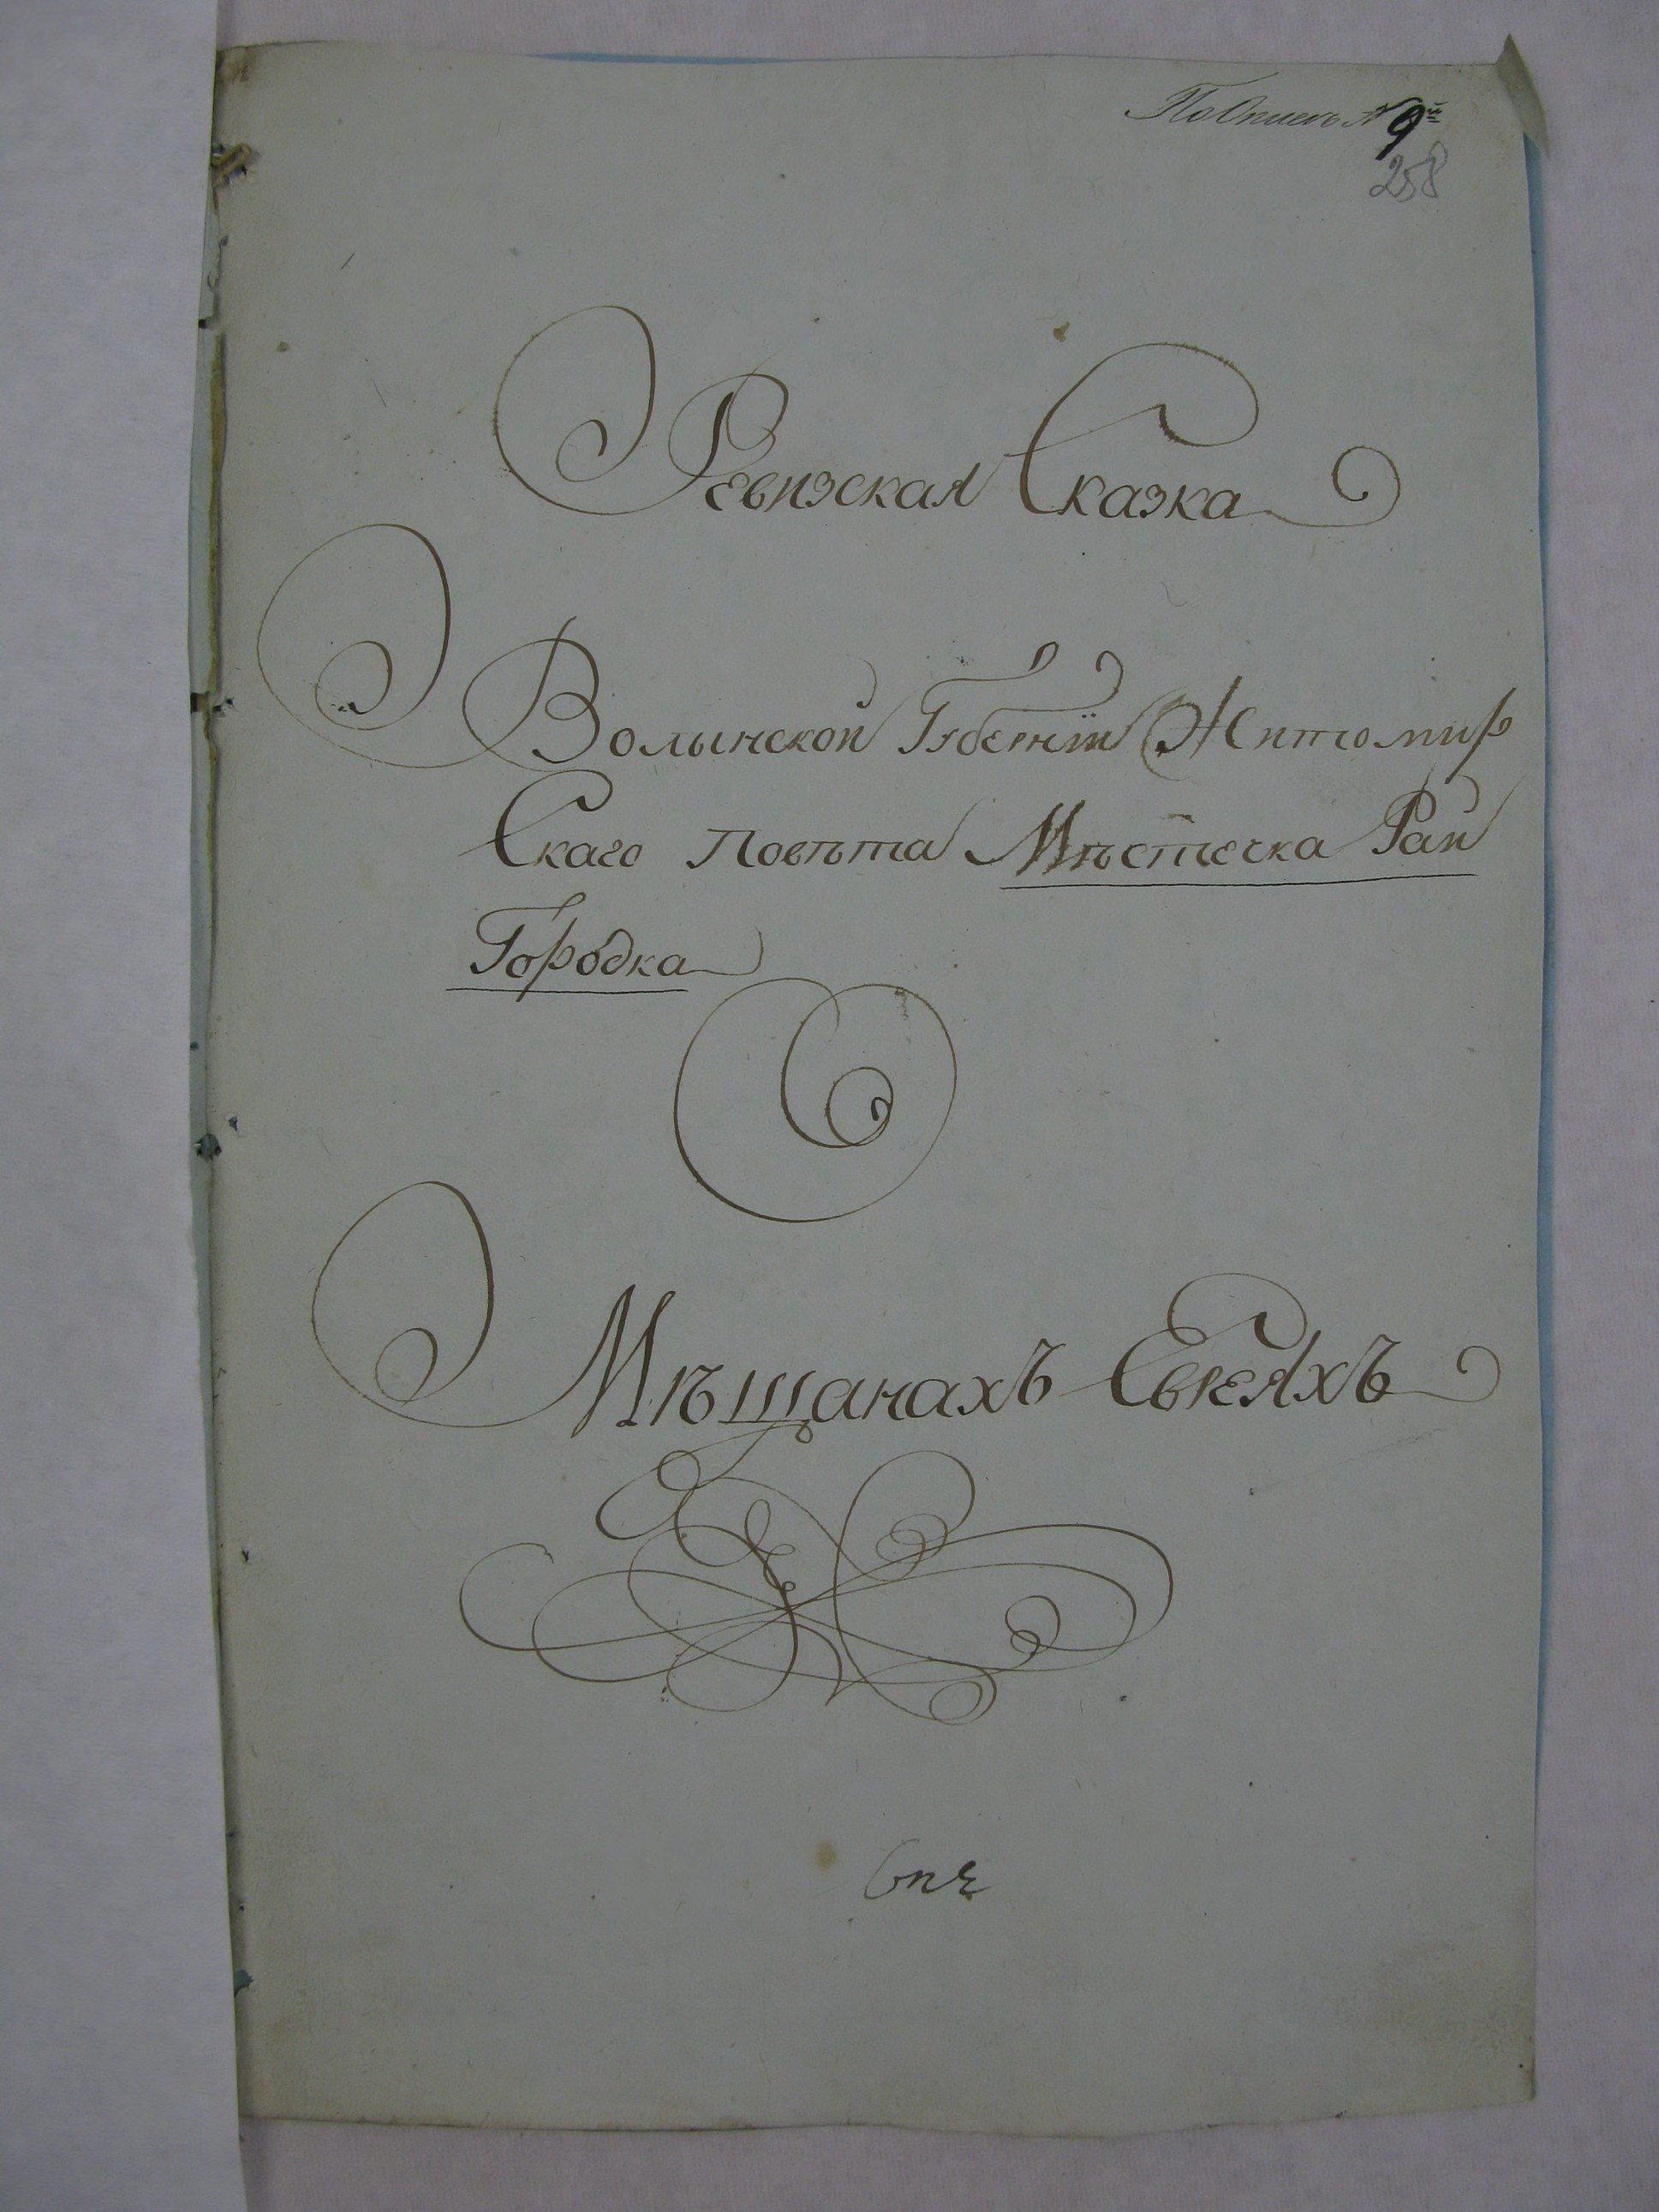 По Описи № 9й
258
Ревизская Сказка
Волынской Губернїи Житомир
Скаго Повѣта Мѣстечка Рай
Городка
Мѣщанахъ Евреяхъ